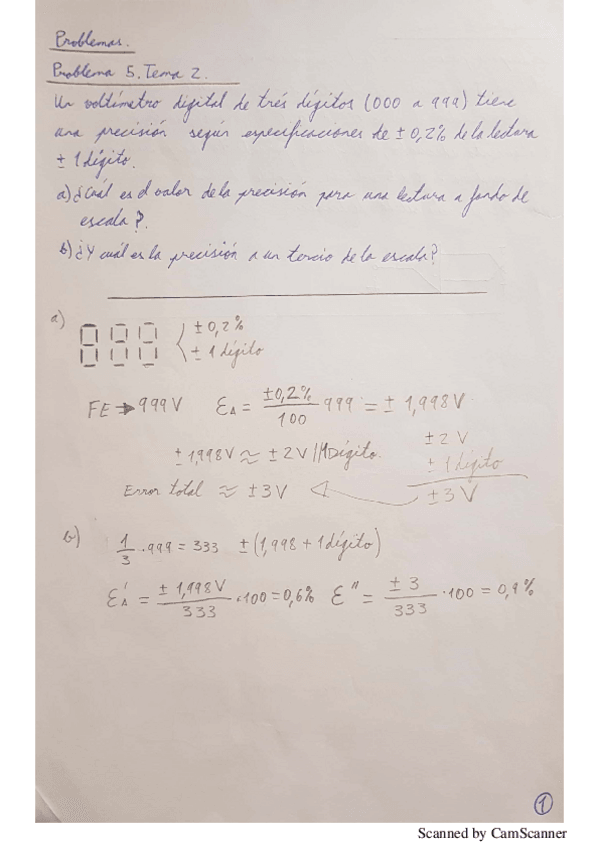 Problemas.
Problema 5. Tema 2.
Un voltímetro digital de trés dígitos (000 a 999) tiene
una precisión según especificaciones de ± 0,2% de la lectura
± 1 dígito.
a) ¿Cuál es el valor de la precisión para una lectura a fondo de
escala?.
b) ¿Y cuál es la precisión a un tercio de la escala?
a)
888 ± 0,2%
± 1 dígito
FE → 999 V ε_A = ±0,2% / 100 999 = ± 1,998 V
± 1,998 V ≈ ± 2 V / 1 Dígito. ± 2 V
± 1 dígito
Error total ≈ ± 3 V ± 3 V
b)
1/3 · 999 = 333 ± (1,998 + 1 dígito)
ε'_A = ± 1,998 V / 333 · 100 = 0,6% ε'' = ± 3 / 333 · 100 = 0,9%
1
Scanned by CamScanner